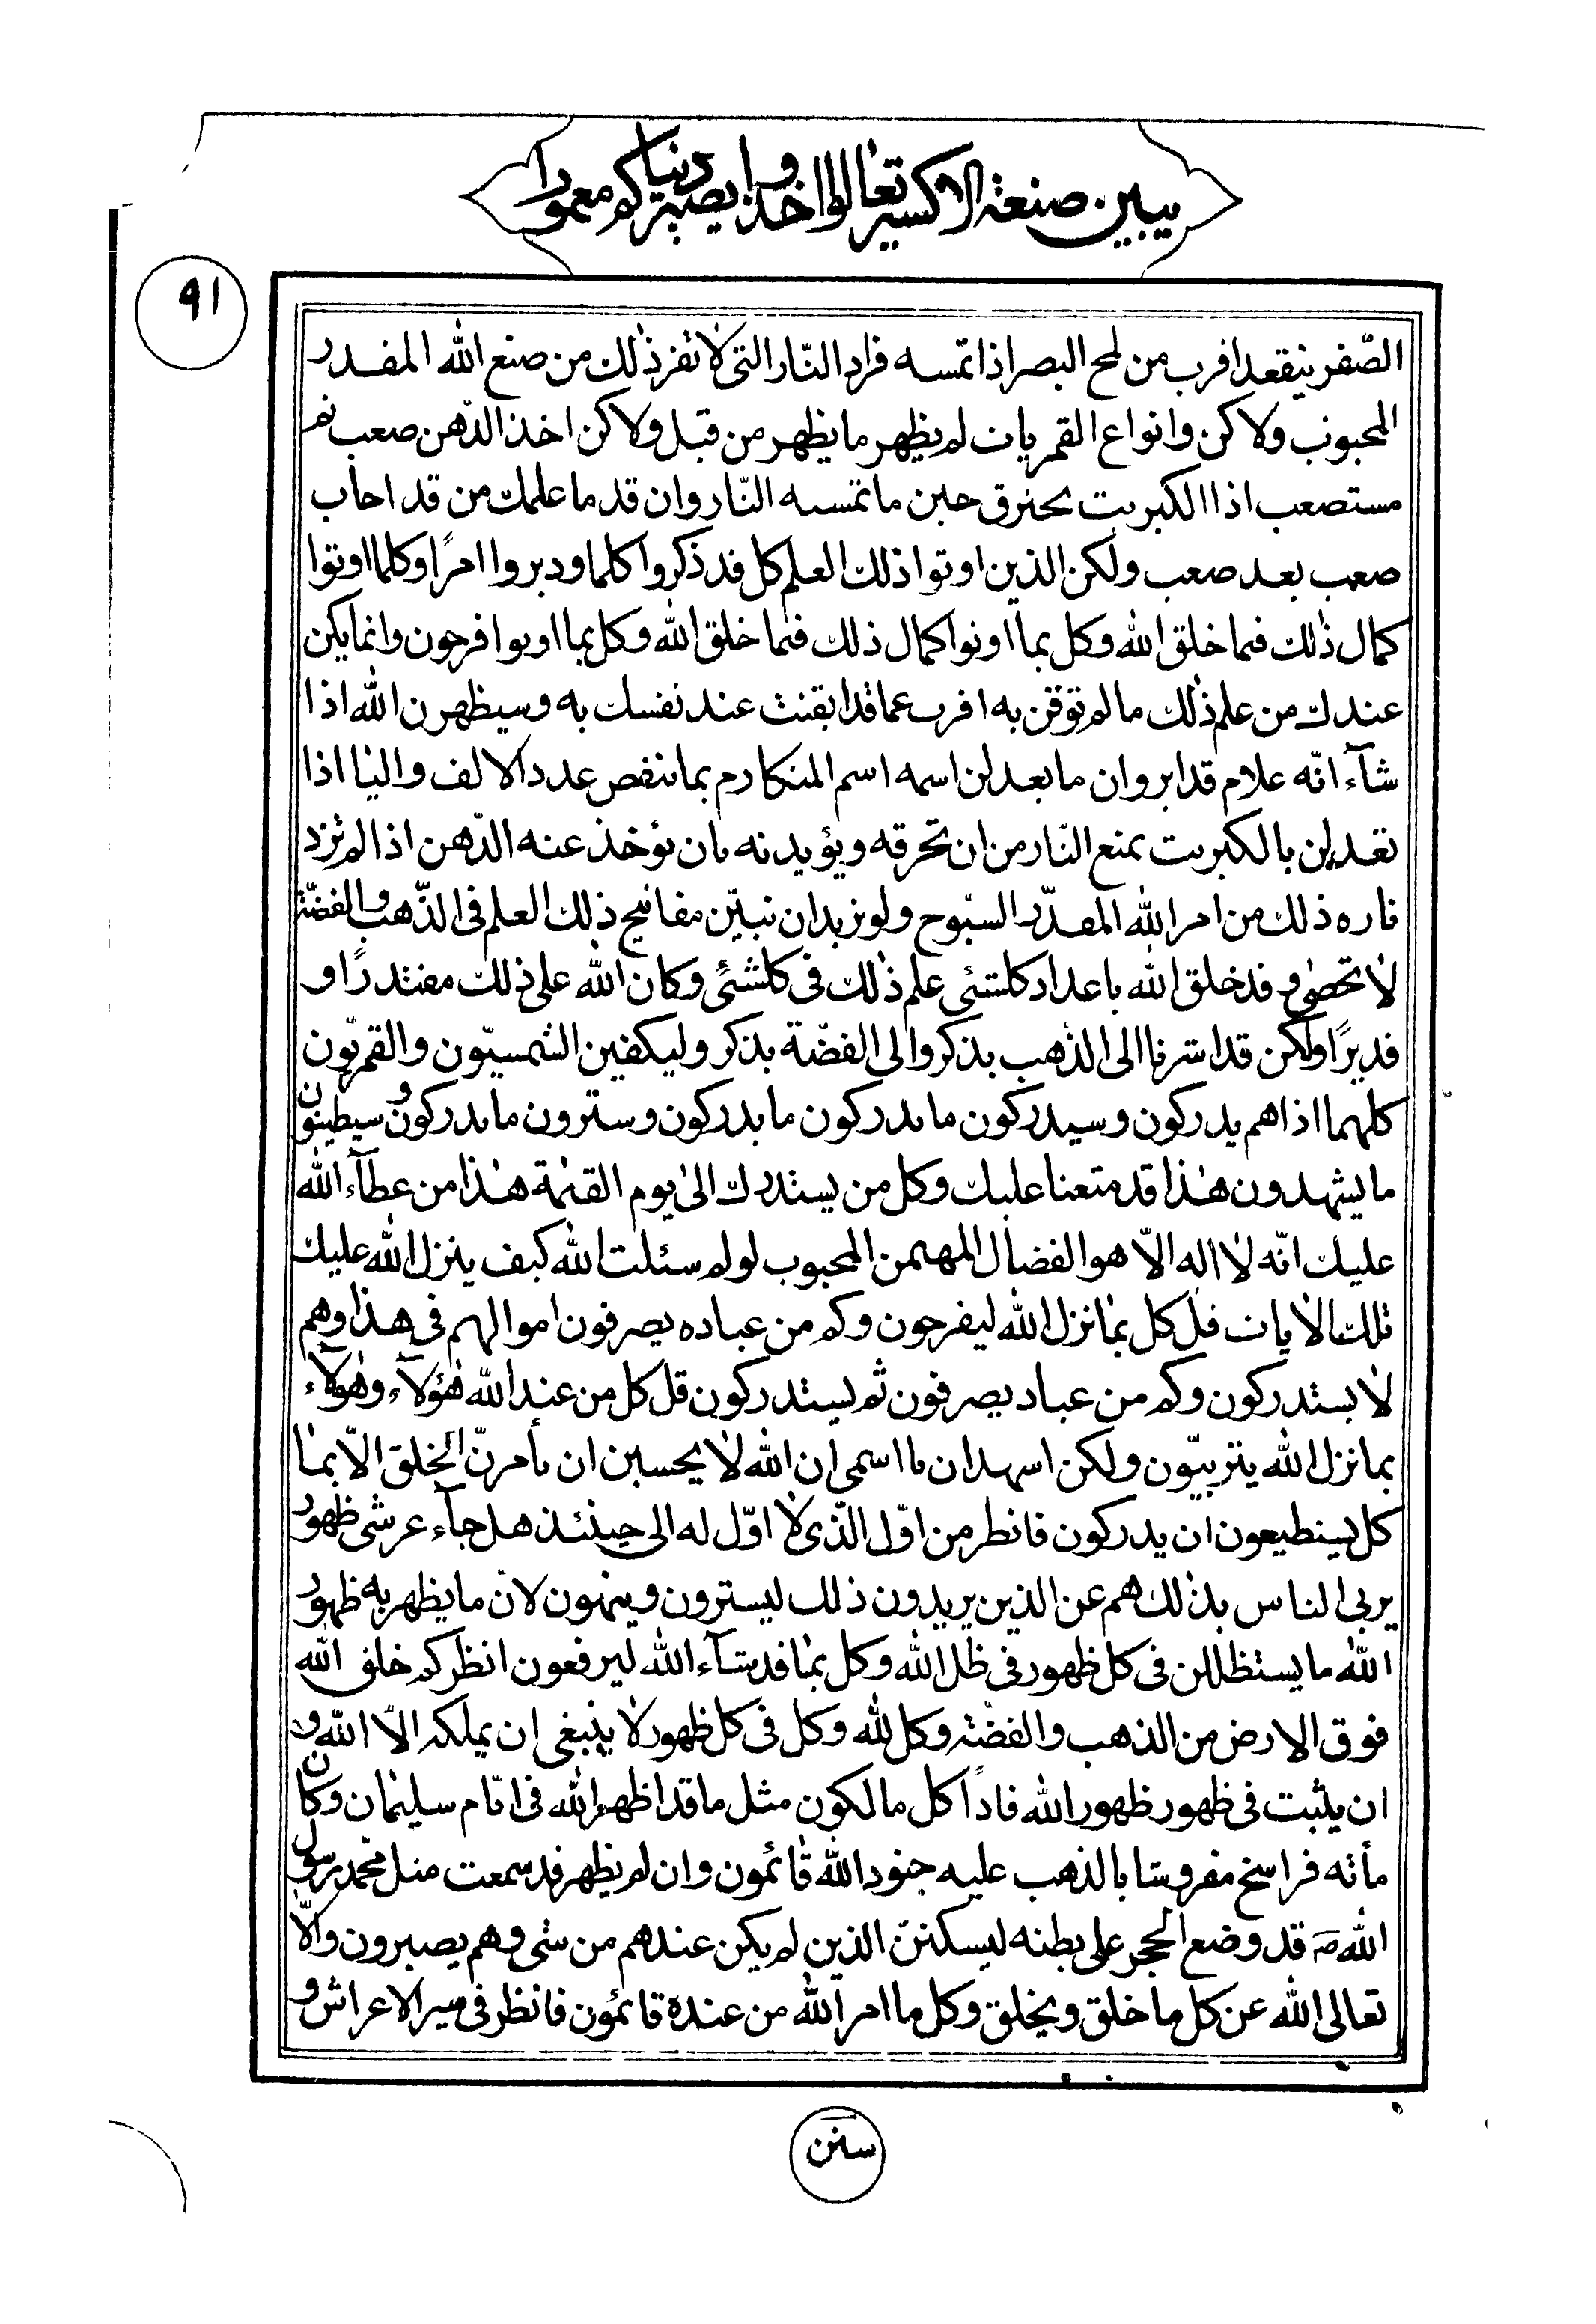 يبين صنعة الاكسير تعالوا اخذوا يصير دنياكم معمورا
٩١
الصّفر ينقعد اقرب من لمح البصر اذا تمسه فرار النّار التى لا تفر ذلك من صنع الله المقدر
المحبوب ولاكن وانواع القمريات لم يظهر ما يظهر من قبل ولاكن اخذ الدّهن صعب ثم
مستصعب اذا الكبريت يحترق حين ما تمسه النّار وان قد ما علمك من قد اجاب
صعب بعد صعب ولكن الذين اوتوا ذلك العلم كل قد ذكروا كلما ودبروا امرًا وكلما اوتوا
كمال ذلك فما خلق الله وكل بما اوتوا كمال ذلك فما خلق الله وكل بما اوتوا فرحون وانما يكن
عندك من علم ذلك ما لم توقن به اقرب عما قد ايقنت عند نفسك به وسيظهرن الله اذا
شآء انّه علام قدابر وان ما يعدلن اسمه اسم المتكارم بما ينقص عدد الالف واليا اذا
تعدلن بالكبريت يمنع النّار من ان تحرقه ويؤيدنه بان يؤخذ عنه الدّهن اذا لم تزد
ناره ذلك من امر الله المقدّر السبّوح ولو نريد ان نبيّن مفاتيح ذلك العلم فى الذّهب والفضّة
لا تحصى وقد خلق الله باعداد كلشئى علم ذلك فى كلشئ وكان الله على ذلك مقتدرًا و
قديرًا ولكن قد اشرنا الى الذهب بذكر والى الفضّة بذكر وليكفين الشمسيّون والقمريّون
كلهما اذا هم يدركون وسيدركون ما يدركون ما يدركون وسترون ما يدركون وسيطيّنون
ما يشهدون هذا قد متعنا عليك وكل من يستدرك الى يوم القيمة هذا من عطآء الله
عليك انّه لا اله الّا هو الفضال المهيمن المحبوب لو لم سئلت الله كيف ينزل الله عليك
تلك الايات قل كل بما نزل الله ليفرحون وكم من عباده يصرفون اموالهم فى هذا وهم
لا يستدركون وكم من عباد يصرفون ثم يستدركون قل كل من عند الله هؤلآء وهؤلآء
بما نزل الله يتربيّون ولكن اشهد ان يا اسمى ان الله لا يحسبن ان يأمرنّ الخلق الّا بما
كل يستطيعون ان يدركون فانظر من اوّل الّذى لا اوّل له الى حينئذ هل جآء عرشى ظهور
يربى الناس بذلك هم عن الذين يريدون ذلك ليسترون وينهون لانّ ما يظهر به ظهور
الله ما يستظللن فى كل ظهور فى ظل الله وكل بما قد شآء الله ليرفعون انظر كم خلق الله
فوق الارض من الذهب والفضّة وكل لله وكل فى كل ظهور لا ينبغى ان يملكه الّا الله و
ان يثبت فى ظهور ظهور الله فاذًا كل مالكون مثل ما قد اظهر الله فى ايّام سليمان وكان
مأته فراسخ مفروشا بالذهب عليه جنود الله قائمون وان لم يظهر قد سمعت مثل محمّد رسول
الله ص قد وضع الحجر على بطنه ليسكننّ الذين لم يكن عندهم من شئ وهم يصبرون والّا
تعالى الله عن كل ما خلق ويخلق وكل ما امر الله من عنده قائمون فانظر فى سير الاعراش و
سنن